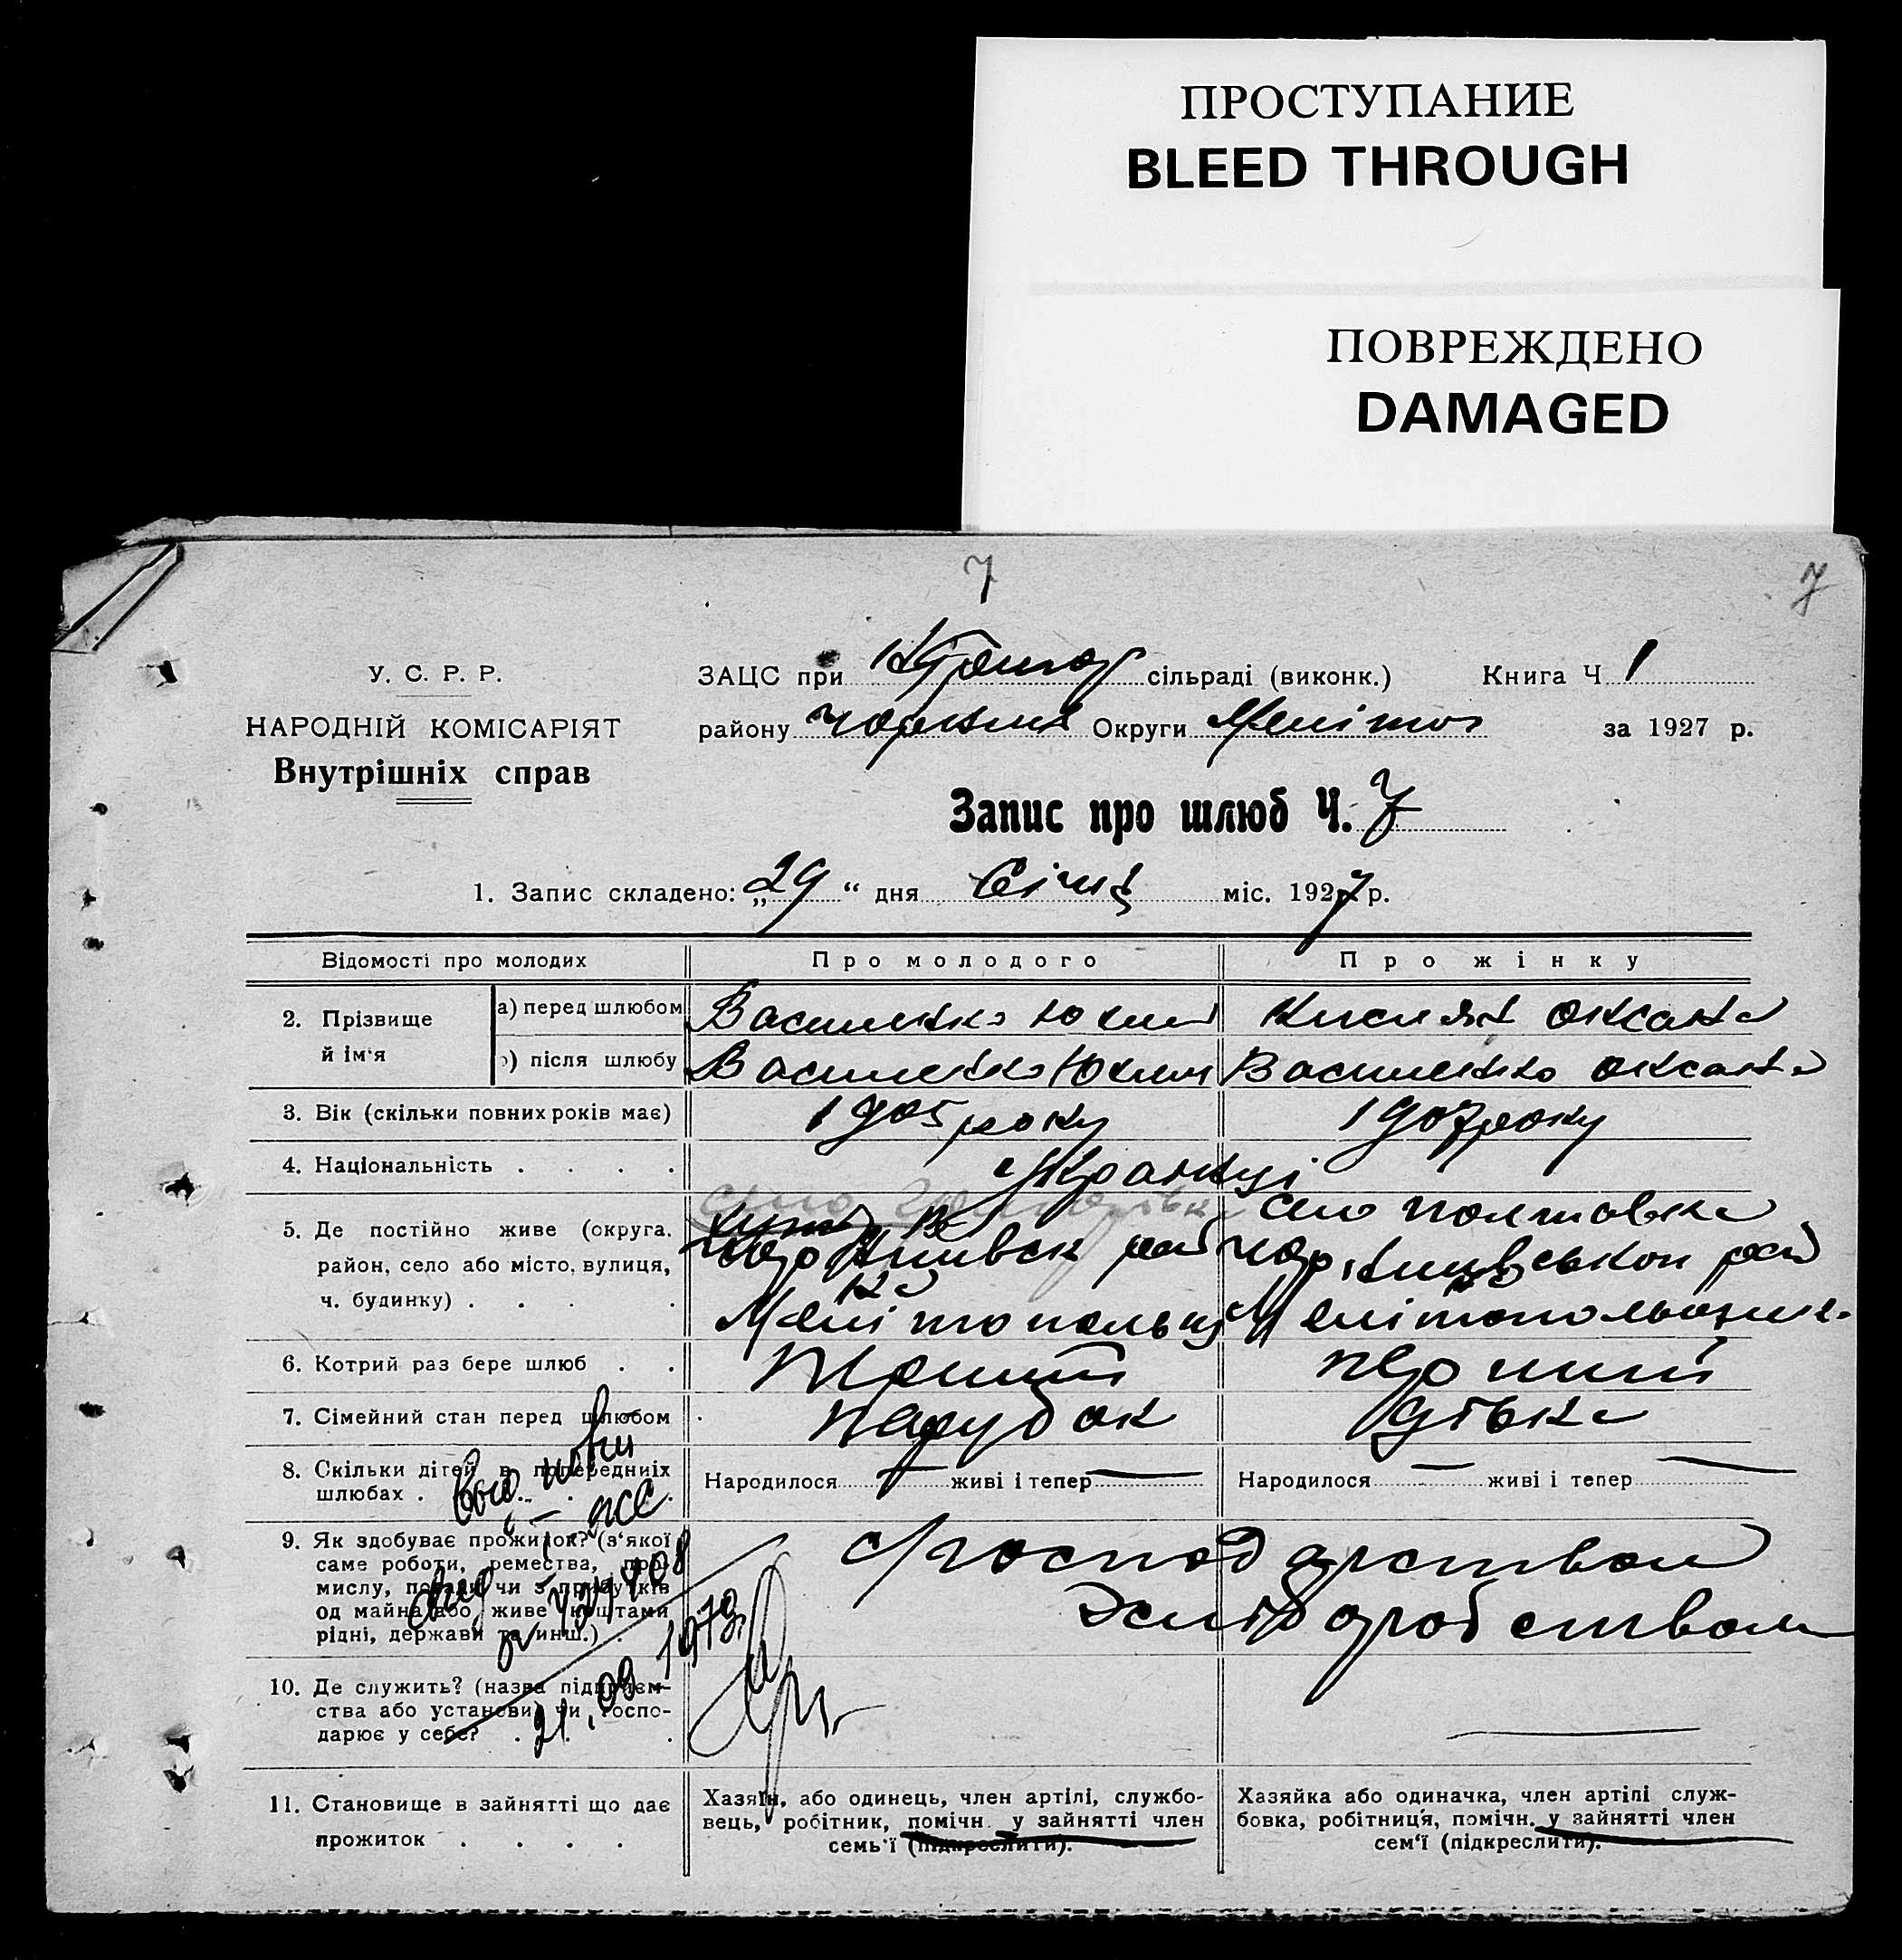 ПРОСТУПАНИЕ
BLEED THROUGH
ПОВРЕЖДЕНО
DAMAGED
7 7
У. С. Р. Р.
НАРОДНІЙ КОМІСАРІЯТ
Внутрішніх справ
ЗАЦС при сільраді (виконк.) Книга Ч 1
району Округи Меліто за 1927 р.
Запис про шлюб Ч. 7
1. Запис складено: „29“ дня Січня міс. 1927 р.
Відомості про молодих Про молодого Про жінку
2. Прізвище й ім'я
а) перед шлюбом Василенко Юхим Кисляк Оксана
б) після шлюбу Василенко Юхим Василенко Оксана
3. Вік (скільки повних років має) 1905 року 1907 року
4. Національність . . . . Українці
5. Де постійно живе (округа, село Полтавка
район, село або місто, вулиця, рай рай
ч. будинку) . . . .
Мелітопольщ Мелітопольщини
6. Котрий раз бере шлюб . . Перший перший
7. Сімейний стан перед шлюбом парубок дівка
8. Скільки дітей в попередніх
шлюбах . Народилося — живі і тепер — Народилося — живі і тепер —
9. Як здобуває прожиток? (з'якої
саме роботи, ремества, про-
мислу, посади чи з прибутків
од майна або живе коштами
рідні, держави та инш.) .
с/господарством
хліборобством
21. 09 1973
10. Де служить? (назва підприєм-
ства або установи) чи госпо-
дарює у себе? . . .
11. Становище в зайнятті що дає
прожиток . . . .
Хазяїн, або одинець, член артілі, службо-
вець, робітник, помічн. у зайнятті член
семь'ї (підкреслити).
Хазяйка або одиначка, член артілі служ-
бовка, робітниця, помічн. у зайнятті член
сем'ї (підкреслити).